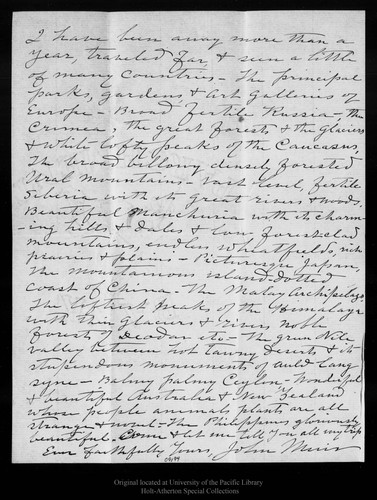 I have been away more than a
year, traveled far, & seen a little
of many countries - The principal
parks, gardens & Art Galleries of
Europe - Broad fertile Russia - the
Crimea, the great forests & the Glaciers
& white lofty peaks of the Caucasus,
The broad billowy densely forested
Ural Mountains - vast level, fertile
Siberia with its great rivers & woods.
Beautiful Manchuria with its charm-
-ing hills & dales & low forest-clad
mountains, endless wheatfields, rich
prairies & plains - Picturesque Japan,
The mountainous island-dotted
coast of China - The Malay Archipelago
The loftiest peaks of the Himalaya
with their Glaciers & rivers noble
forests of Deodar etc - The green Nile
valley between hot tawny deserts & its
stupendous monuments of auld lang
syne - Balmy palmy Ceylon - Wonderful
& beautiful Australia & New Zealand
whose people animals plants are all
strange & novel - The Philippines gloriously
beautiful. Come & let me tell you all my trip
Ever Faithfully Yours John Muir
Original located at University of the Pacific Library
Holt-Atherton Special Collections